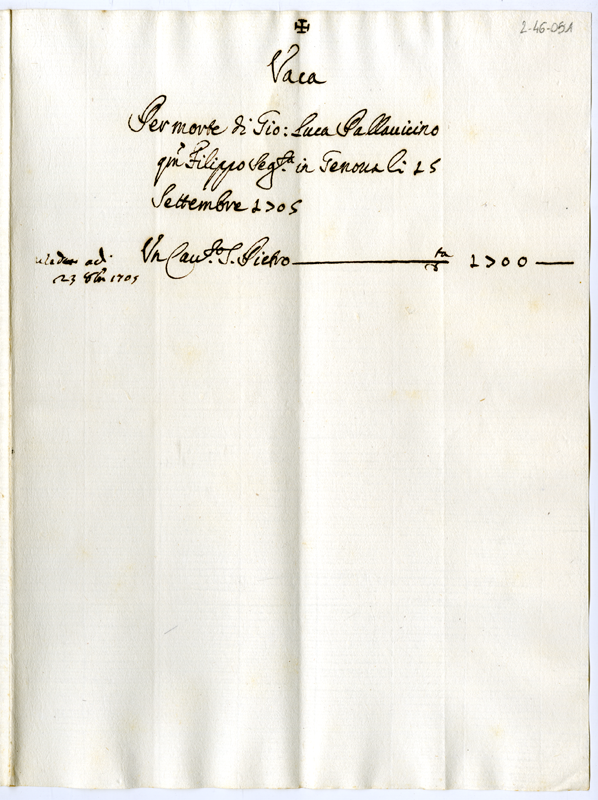 2-46-051
✠
Vaca
Per morte di Gio: Luca Pallavicino
qm Filippo Seg.ta in Genova li 15
Settembre 1705
Un Cau.to S. Pietro ta 1700
adi
23 8bre 1705